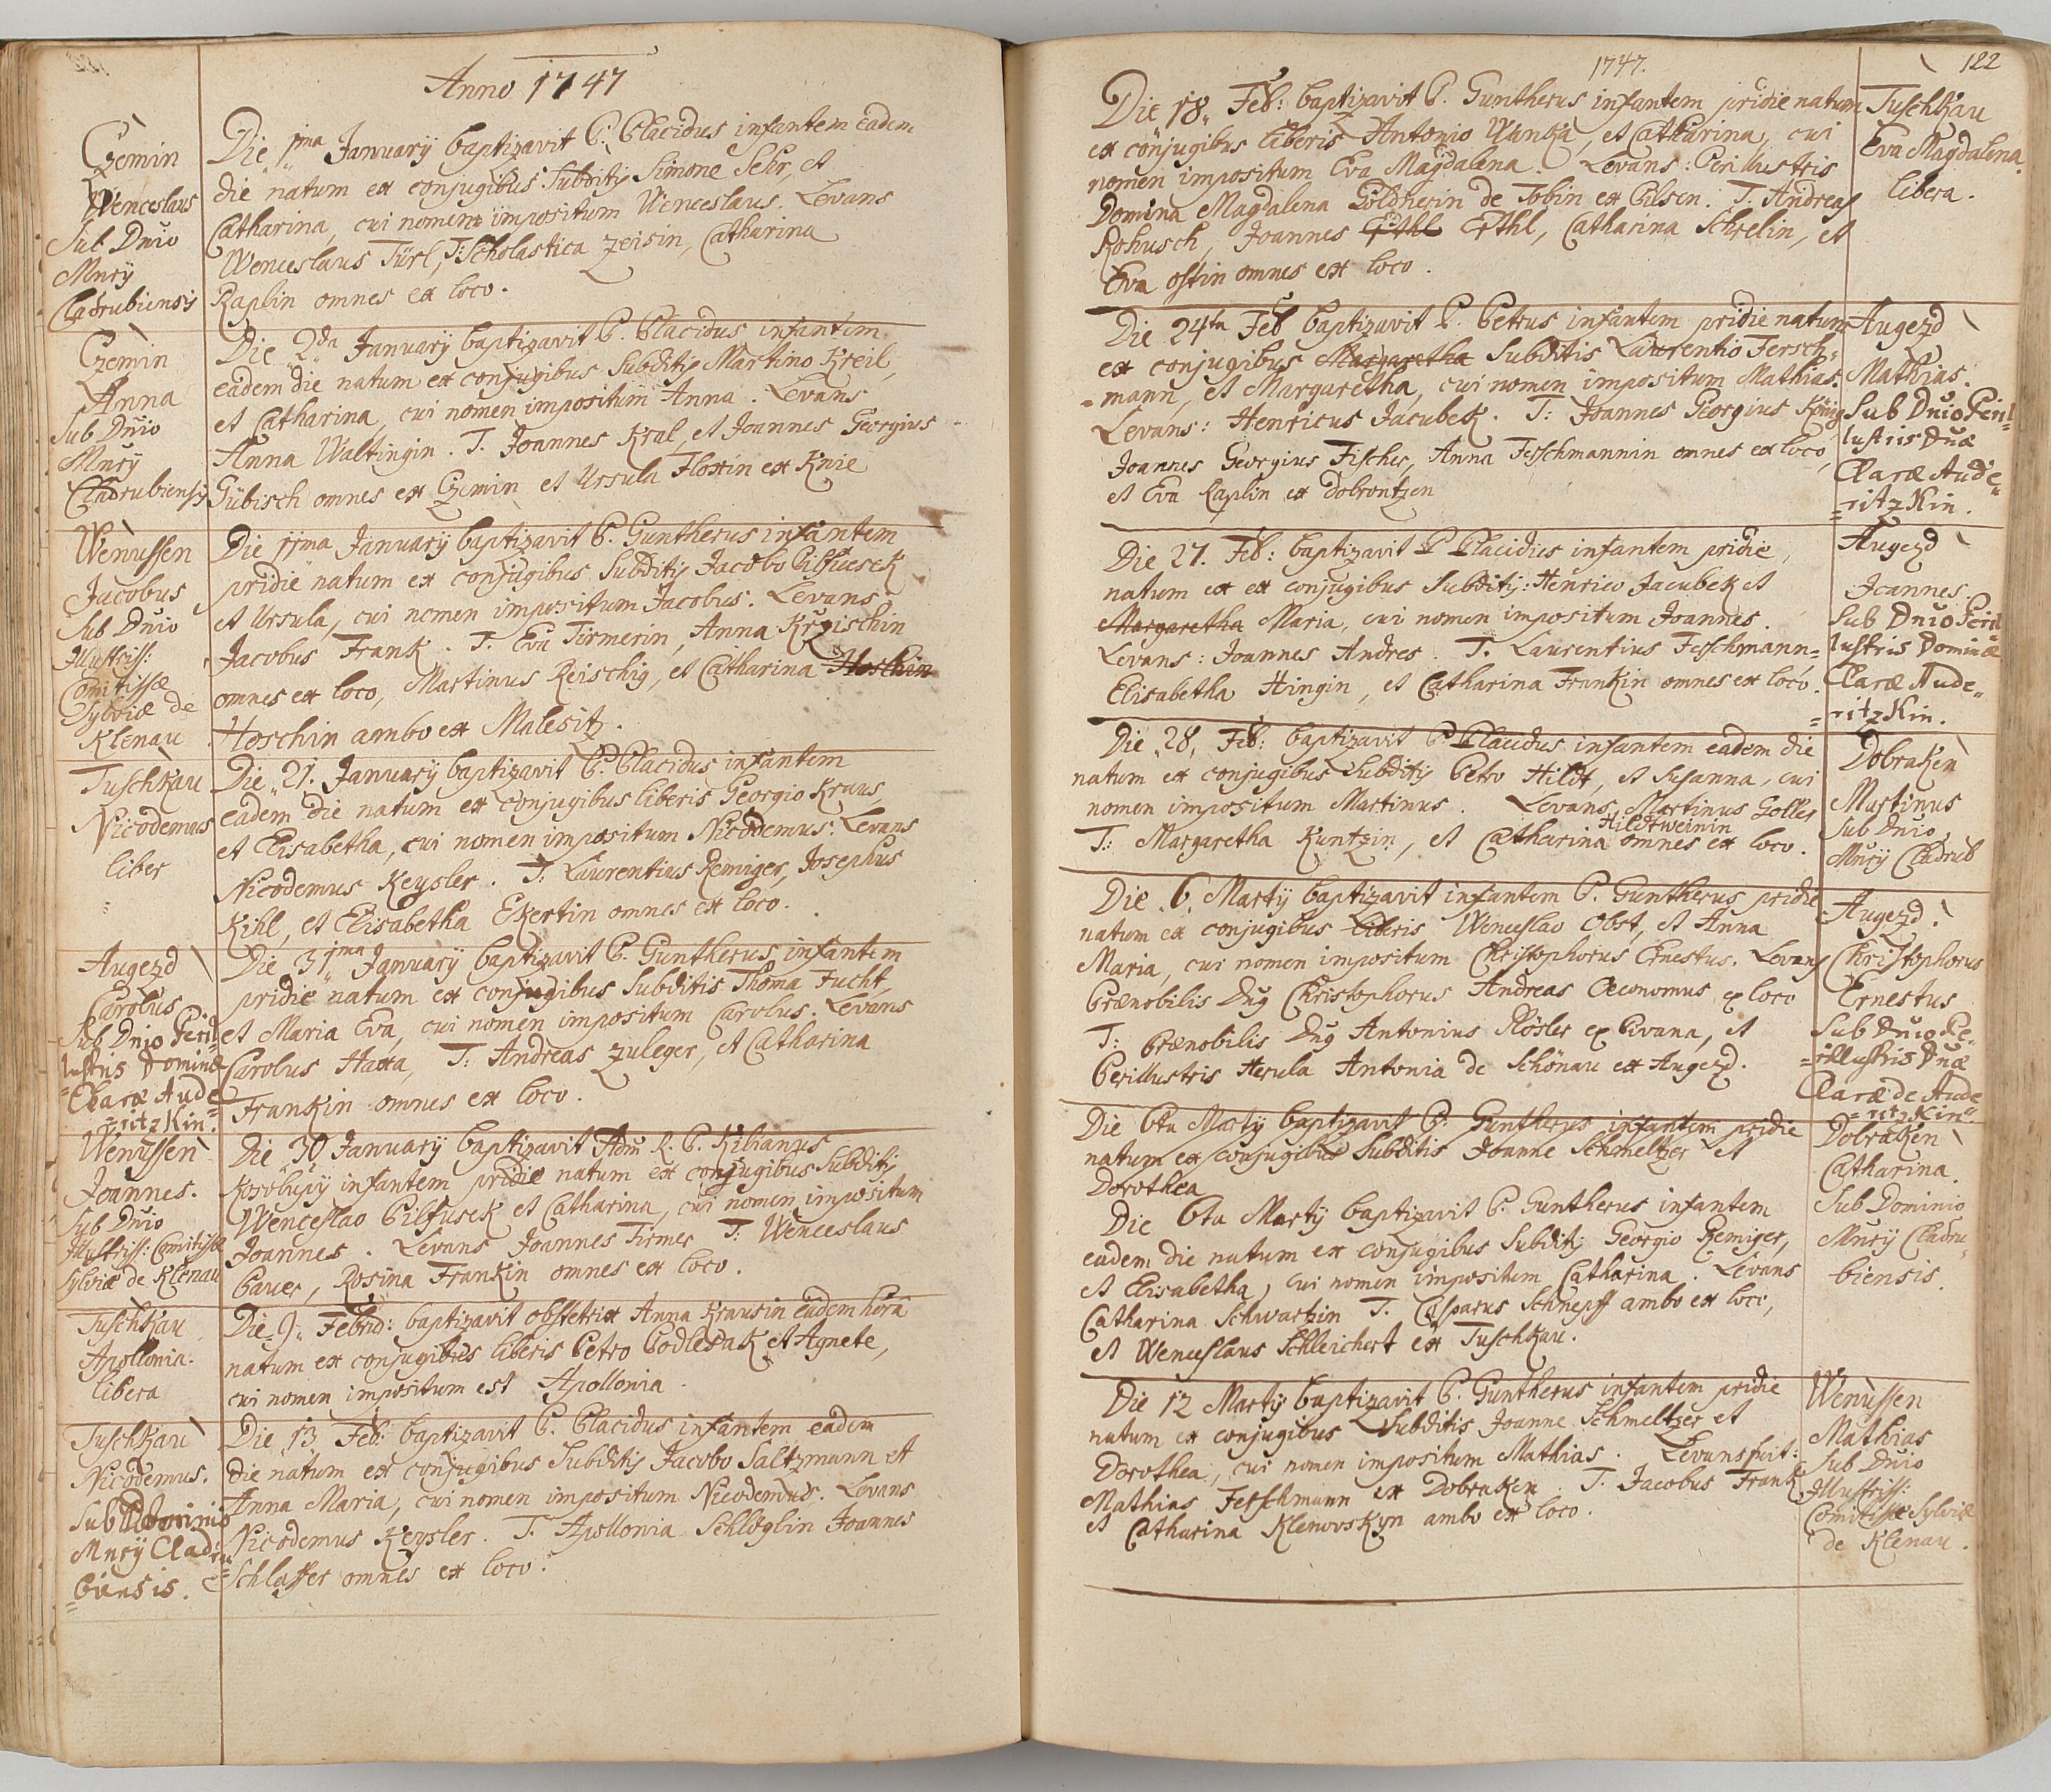 Anno 1747
Czemin
Wenceslaus
Sub Dnio
Mnrÿ
Cladrubiensis
Die 1ma Januarÿ baptizavit P. Placidus infantem eadem
die natum ex conjugibus Subditis Simone Sehr, et
Catharina, cui nomen impositum Wenceslaus. Levans
Wenceslaus Türl, T: Scholastica Zeisin, Catharina
Raplin omnes ex loco.
Czemin
Anna
Sub Dnio
Mnrÿ
Cladrubiensis
Die 2da Januarÿ baptizavit P. Placidus infantem
eadem die natum ex conjugibus Subditis Martino Kreil,
et Catharina, cui nomen impositum Anna. Levans
Anna Waltingin. T. Joannes Kral, et Joannes Georgius
Gübisch omnes ex Czemin et Ursula Floxin ex Knie
Wenussen
Jacobus
Sub Dnio
Illustriss:
Comitissæ
Sylviæ de
Klenau
Die 11ma Januarÿ baptizavit P. Guntherus infantem
pridie natum ex conjugibus Subditis Jacobo Pilsucsek
et Ursula, cui nomen impositum Jacobus. Levans
Jacobus Frank. T. Eva Tirmerin, Anna Krzischin
omnes ex loco, Martinus Reischig, et Catharina Hoschin
Hoschin ambo ex Malesitz.
Tuschkau
Nicodemus
liber
Die 21. Januarÿ baptizavit P. Placidus infantem
eadem die natum ex conjugibus liberis Georgio Kraus,
et Elisabetha, cui nomen impositum Nicodemus. Levans
Nicodemus Keysler. T: Laurentius Remiger, Josephus
Kihl, et Elisabetha Ekertin omnes ex loco.
Augezd
Carolus
Sub Dnio Peril
lustris Dominæ
Claræ Aude
=ritzkin.
Die 31ma Januarÿ baptizavit P. Guntherus infantem
pridie natum ex conjugibus Subditis Thoma Fucht,
et Maria Eva, cui nomen impositum Carolus. Levans
Carolus Haxa, T: Andreas Zuleger, et Catharina
Frankin omnes ex loco.
Wenussen
Joannes.
Sub Dnio
Illustriss: Comitissæ
Sylviæ de Klenau
Die 30 Januarÿ baptizavit Adm R. P. Kilianus
Kosolupÿ infantem pridie natum ex conjugibus Subditis
Wenceslao Pilsusek et Catharina, cui nomen impositum
Joannes. Levans Joannes Tirmer T: Wenceslaus
Bauer, Rosina Frankin omnes ex loco.
Tuschkau
Apollonia.
libera
Die 9. Februa: baptizavit obstetrix Anna Krausin eadem hora
natum ex conjugibus liberis Petro Podlesak et Agnete,
cui nomen impositum est Apollonia.
Tuschkau
Nicodemus.
Sub Dominio
Mnrÿ Cladru
=biensis.
Die 13 Feb: baptizavit P. Placidus infantem eadem
die natum ex conjugibus Subditis Jacobo Saltzmann et
Anna Maria, cui nomen impositum Nicodemus. Levans
Nicodemus Keysler. T. Apollonia Schlöglin Joannes
Schlasser omnes ex loco.
1747.
122
Die 18. Feb: baptizavit P. Guntherus infantem pridie natum
ex conjugibus liberis Antonio Wanka, et Catharina, cui
nomen impositum Eva Magdalena. Levans: Perillustris
Domina Magdalena Goldherin de Tobin ex Pilsen. T. Andreas
Rohusch, Joannes Erthl Erthl, Catharina Schrelin, et
Eva ostin omnes ex loco.
Tuschkau
Eva Magdalena.
libera.
Die 24ta Feb baptizavit P. Petrus infantem pridie natum
ex conjugibus Margaretha Subditis Laurentio Fersch=
=mann, et Margaretha, cui nomen impositum Mathias.
Levans: Henricus Jacubek. T: Joannes Georgius König
Joannes Georgius Fischer, Anna Ferschmannin omnes ex loco,
et Eva Raplin ex Dobrontzen
Augezd
Mathias.
Sub Dnio Peril
lustris Dnæ
Claræ Aude
=ritzkin.
Die 27. Feb: baptizavit P Placidus infantem pridie,
natum ex ex conjugibus Subditis: Henrico Jacubek et
Margaretha Maria, cui nomen impositum Joannes.
Levans: Joannes Andres. T. Laurentius Ferschmann=
Elisabetha Hingin, et Catharina Frankin omnes ex loco.
Augezd
Joannes.
Sub Dnio Peril
lustris Dominæ
Claræ Aude=
=ritzkin.
Die 28. Feb: baptizavit P. Placidus infantem eadem die
natum ex conjugibus Subditis Petro Hildt, et Susanna, cui
nomen impositum Martinus. Levans Martinus Goller
Hildtweinin
T: Margaretha Kuntzin, et Catharina omnes ex loco.
Dobraken
Martinus
Sub Dnio
Mnrÿ Cladrub
Die 6 Martÿ baptizavit infantem P. Guntherus pridie
natum ex conjugibus liberis Wenceslao Obst, et Anna
Maria, cui nomen impositum Christophorus Ernestus. Levans
Prænobilis Dnus Christophorus Andreas Oeconomus ex loco
T: Prænobilis Dnus Antonius Rösler ex Pivana, et
Perillustris Herula Antonia de Schönau ex Augezd.
Augezd.
Christophorus
Ernestus
Sub Dnio Pe=
=rillustris Dnæ
Claræ de Aude
=ritzkin
Die 6ta Martÿ baptizavit P. Guntherus infantem pridie
natum ex conjugibus Subditis Joanne Schmeltzer et
Dorothea
Die 6ta Martÿ baptizavit P. Guntherus infantem
eadem die natum ex conjugibus Subditis Georgio Remiger,
et Elisabetha, cui nomen impositum Catharina. Levans
Catharina Schwartzin T. Casparus Schnepff ambo ex loco,
et Wenceslaus Schleichert ex Tuschkau.
Dobraken
Catharina.
Sub Dominio
Mnrÿ Cladru=
biensis.
Die 12 Martÿ baptizavit P. Guntherus infantem pridie
natum ex conjugibus Subditis Joanne Schmeltzer et
Dorothea, cui nomen impositum Mathias. Levans fuit:
Mathias Ferschmann ex Dobraken. T. Jacobus Frank
et Catharina Klenovskyn ambo ex loco.
Wenussen
Mathias
Sub Dnio
Illustriss:
Comitissæ Sylviæ
de Klenau.